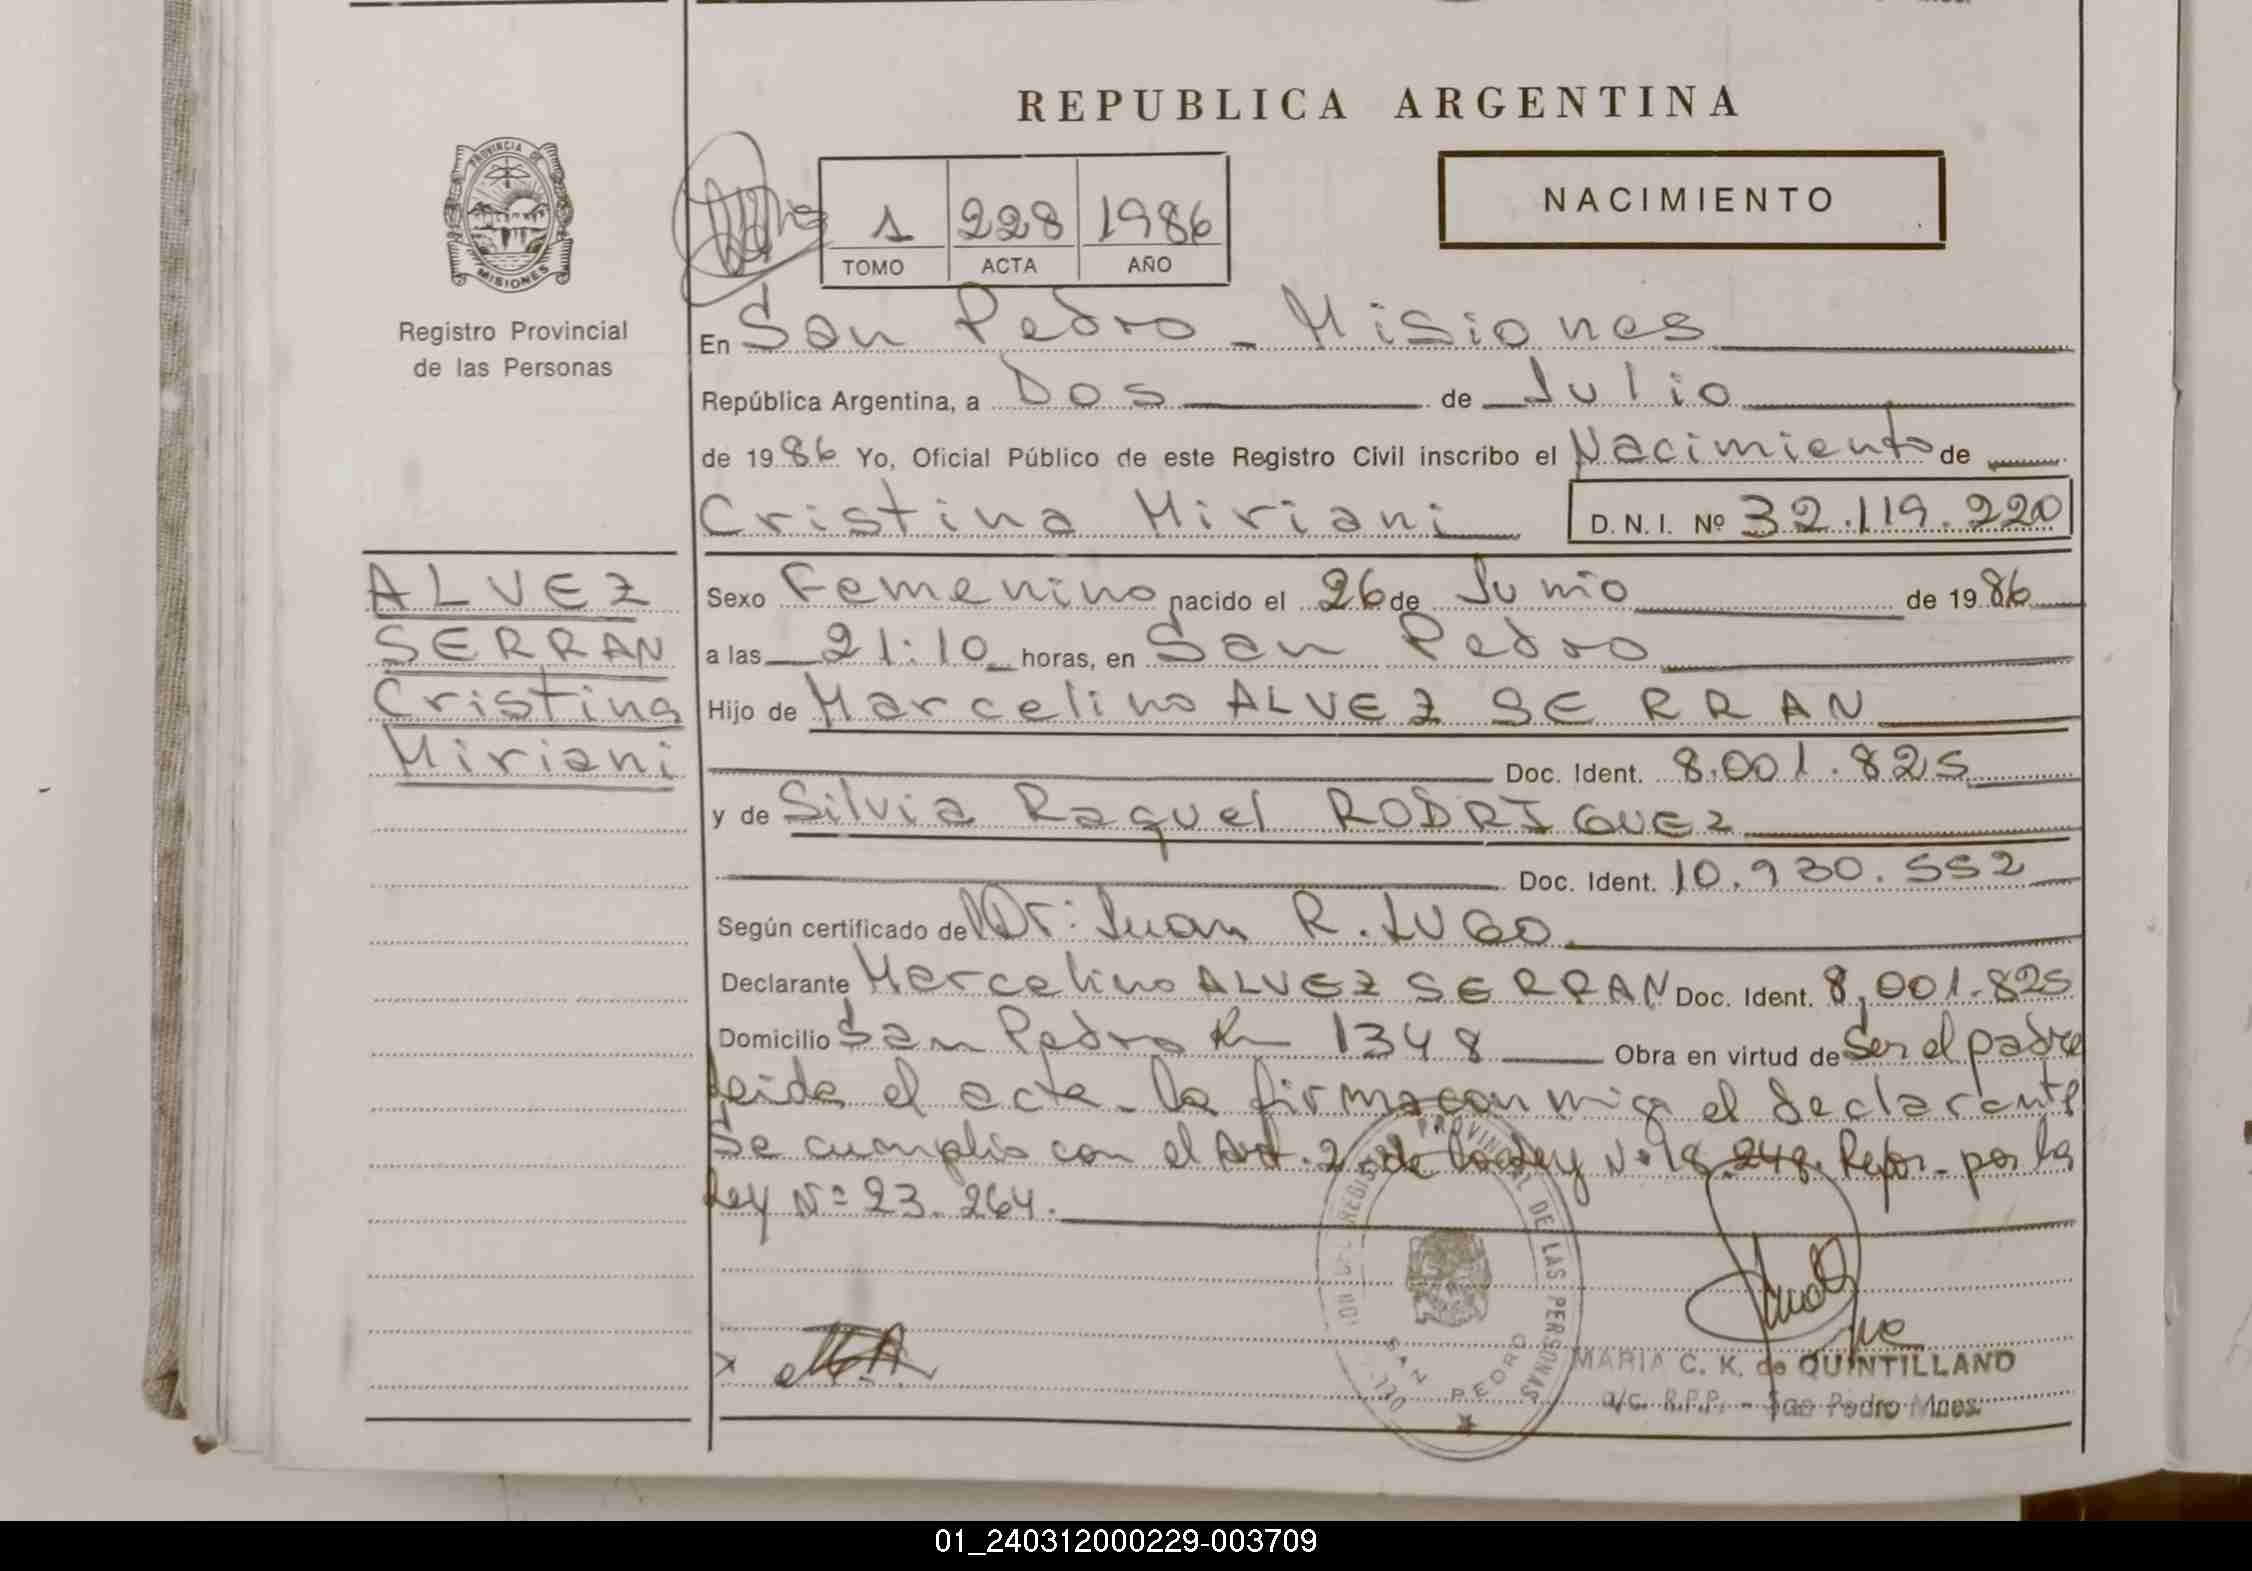 REPUBLICA ARGENTINA
PROVINCIA DE
MISIONES
Registro Provincial
de las Personas
1 228 1986
TOMO ACTA AÑO
NACIMIENTO
En San Pedro - Misiones
República Argentina, a Dos de Julio
de 1986 Yo, Oficial Público de este Registro Civil inscribo el Nacimiento de
Cristina Miriani D. N. I. Nº 32.119.220
ALVEZ
SERRAN
Cristina
Miriani
Sexo Femenino nacido el 26 de Junio de 1986
a las 21:10 horas, en San Pedro
Hijo de Marcelino ALVEZ SERRAN
Doc. Ident. 8.001.825
y de Silvia Raquel RODRIGUEZ
Doc. Ident. 10.930.552
Según certificado de Dr: Juan R. LUGO
Declarante Marcelino ALVEZ SERRAN Doc. Ident. 8.001.825
Domicilio San Pedro Km 1348 Obra en virtud de ser el padre
Leida el acta - la firma con migo el declarante
Se cumplio con el Art. 2 de la Ley Nº 18.248. Refor. por la
Ley Nº 23.264.
REGISTRO PROVINCIAL DE LAS PERSONAS
SAN PEDRO
MARIA C. K. de QUINTILLAND
a/c. R.P.P. - San Pedro Mnes.
01_240312000229-003709